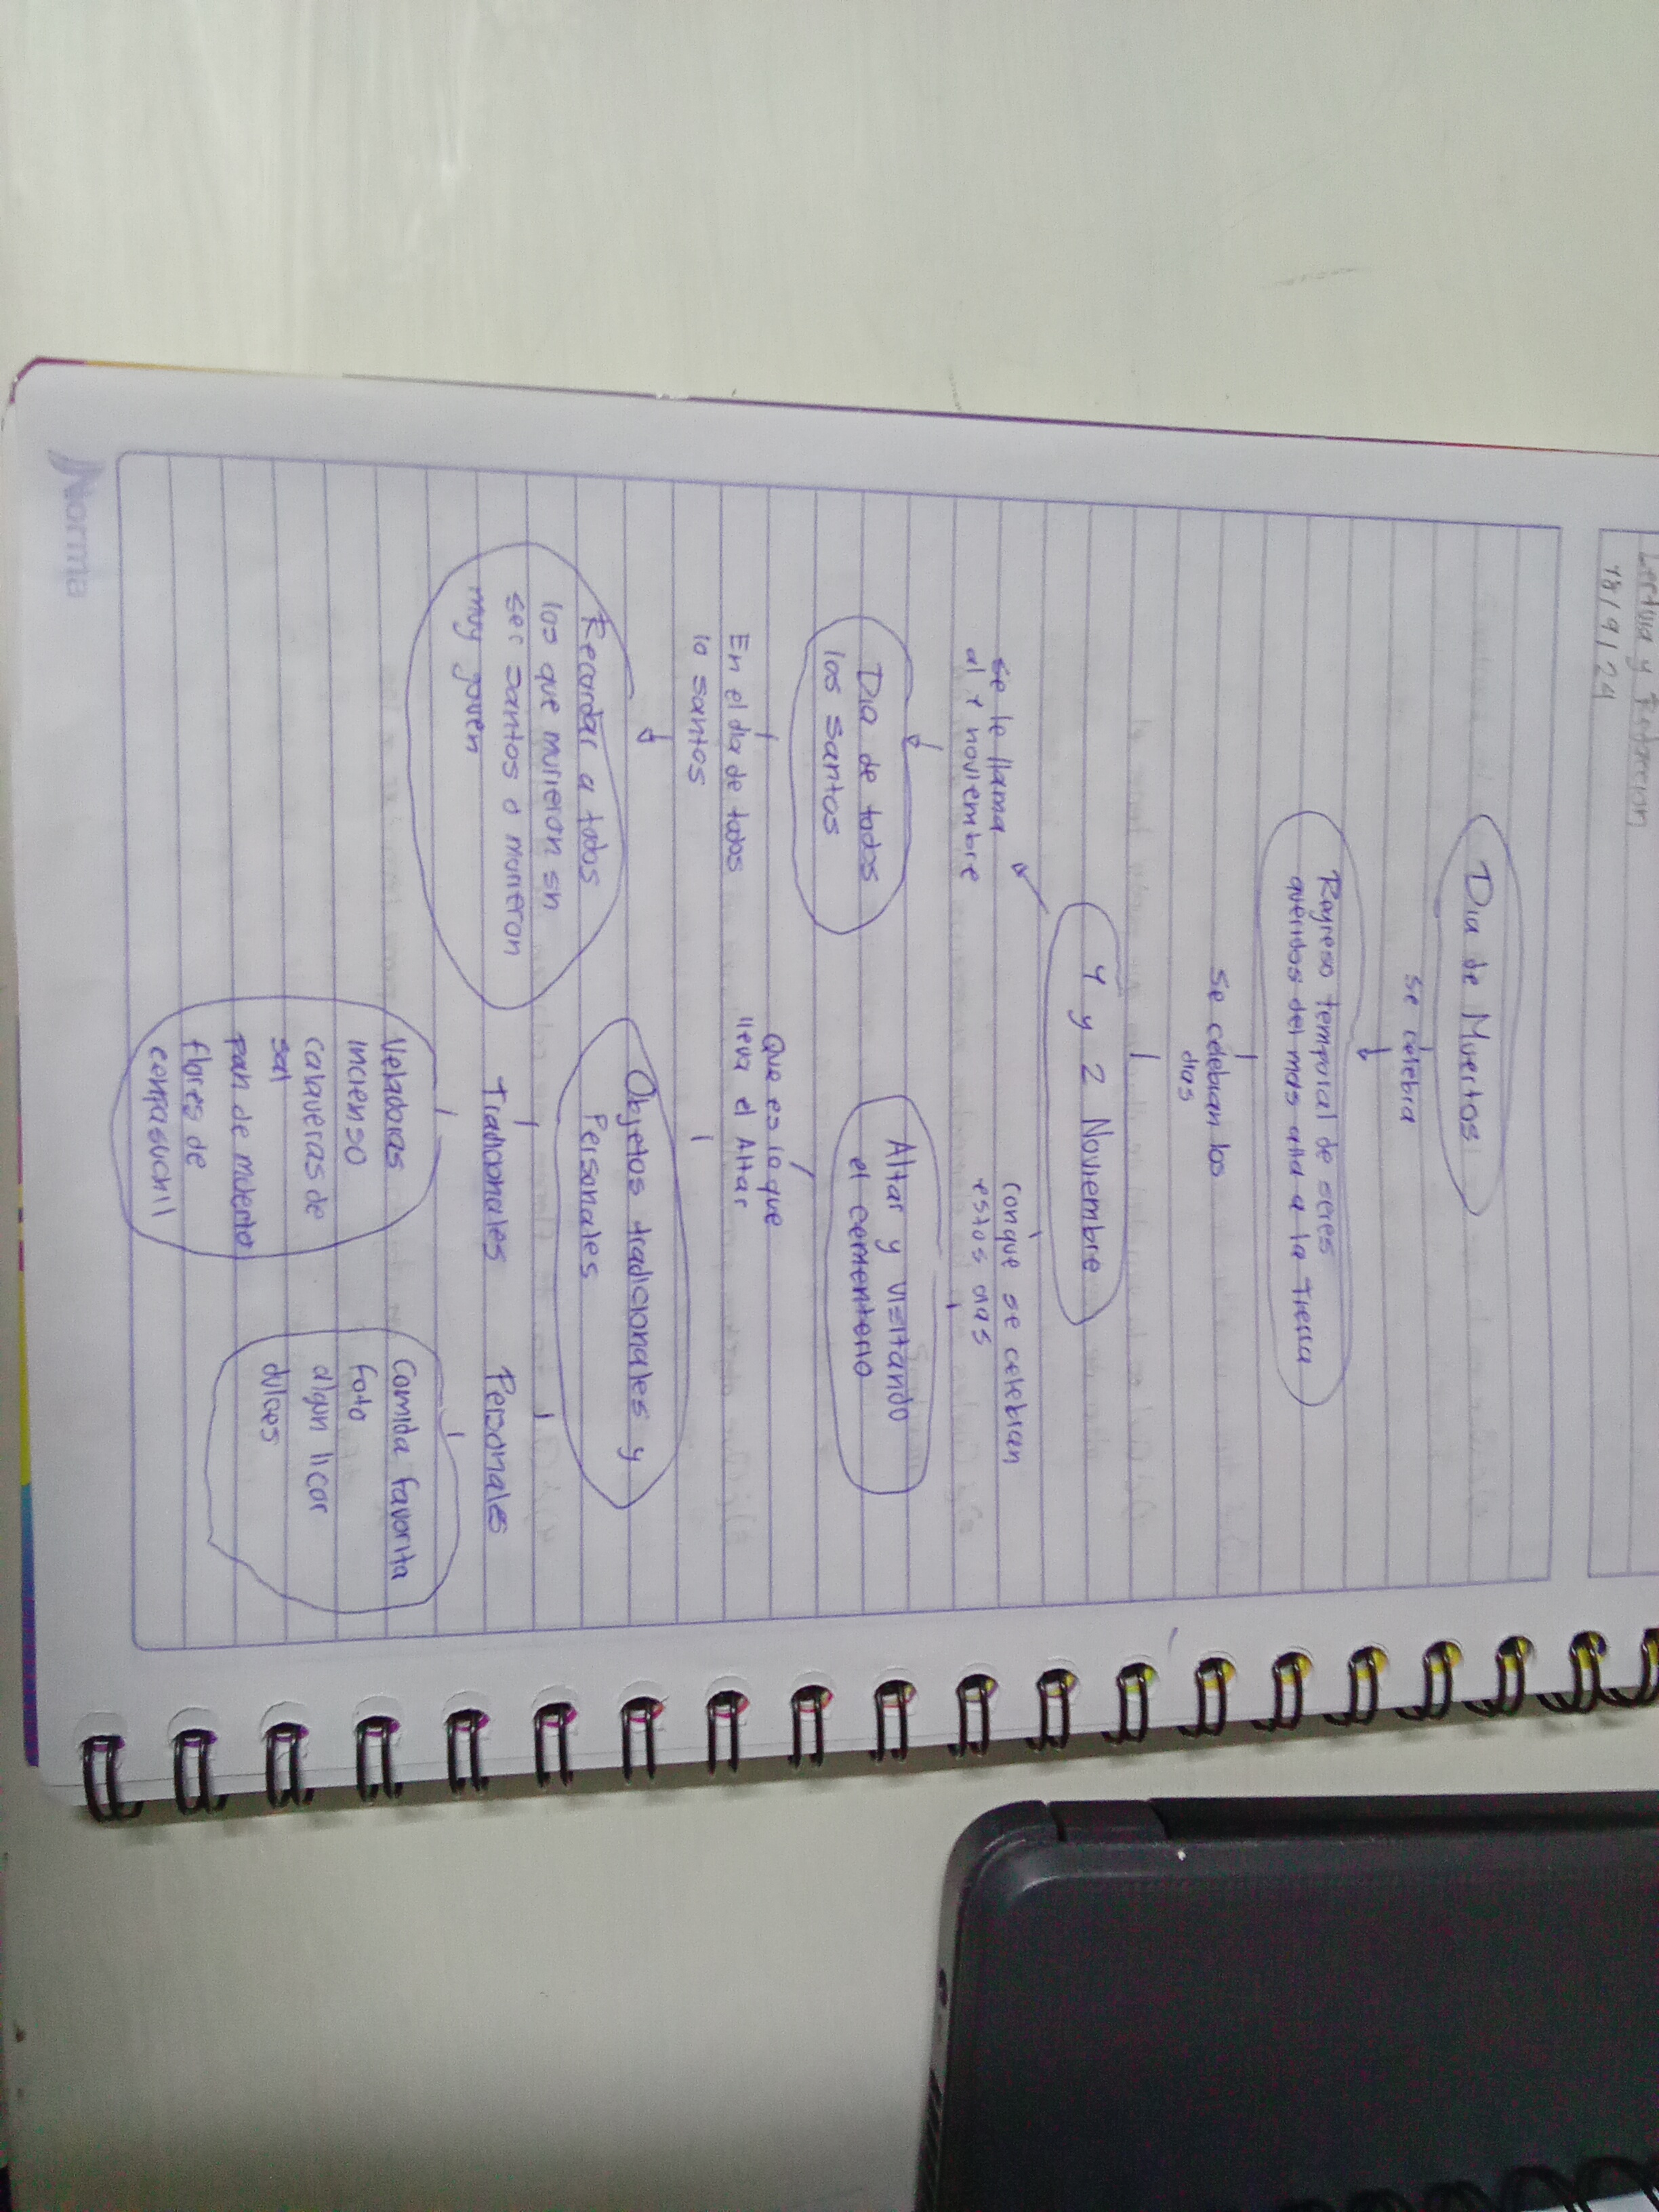 Lectura y Redaccion
18/9/24
Dia de Muertos
se celebra
Regreso temporal de seres
queridos del mas alla a la Tierra
Se celebran los
dias
1 y 2 Noviembre
se le llama
al 1 noviembre
Con que se celebran
estos dias
Dia de todos
los santos
Altar y visitando
el cementerio
En el dia de todos
lo santos
Que es lo que
lleva el Altar
Recordar a todos
los que murieron sin
ser santos o murieron
muy joven
Objetos tradicionales y
Personales
Tradicionales
Personales
Veladoras
incienso
calaveras de
sal
pan de muerto
flores de
cempasuchil
Comida favorita
foto
algun licor
dulces
Norma